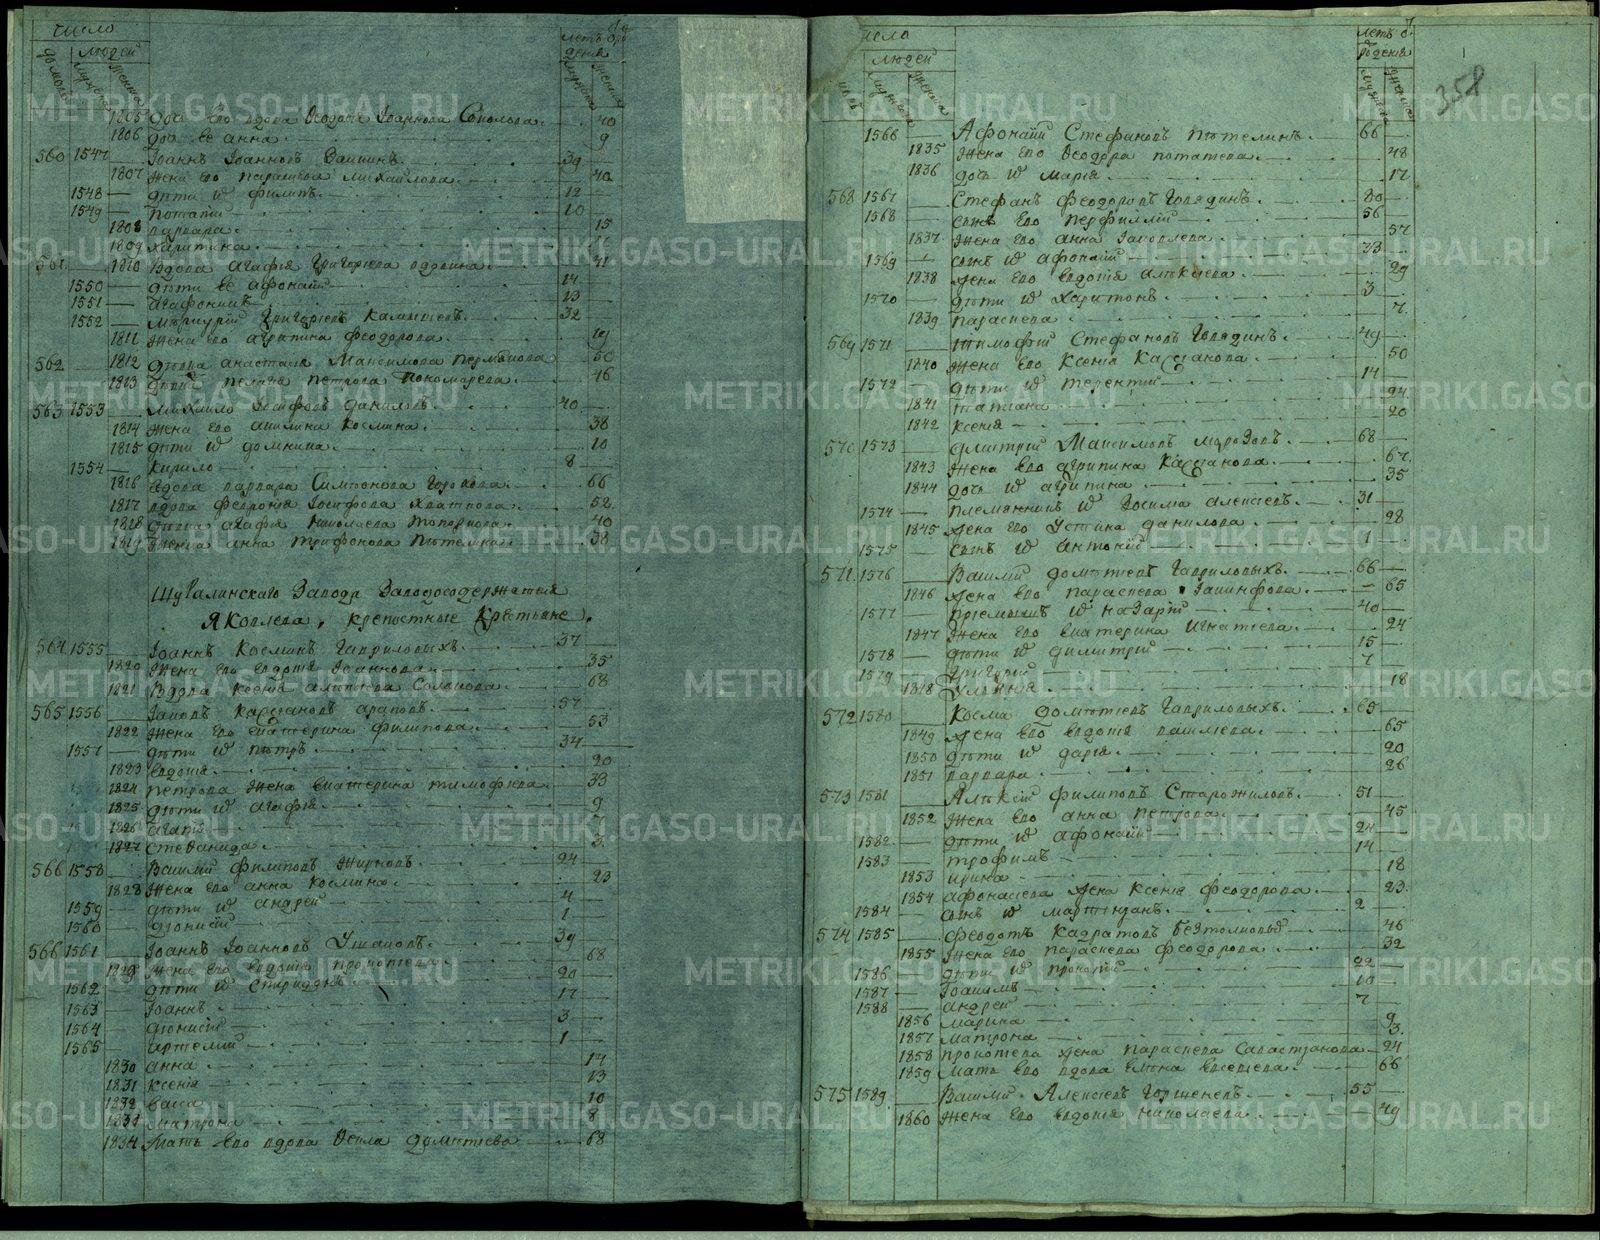 число
людей
1805 Два его вдова Ѳеодосья Іоаннова Соколова 70
1806 дочь ее анна 9
560 1547 Іоаннъ Іоанновъ 39
1807 жена его параскева михайлова 40
1548 дѣти их филипъ 12
1549 потапій 10
1808 варвара 15
1809 харитина
561 1810 Вдова агафья Григорьева 41
1550 дѣти ее афонасій 14
1551 агафоникъ 13
1552 Меркурій Григорьевъ Камышевъ 32
1811 жена его агрипина феодорова
562 1812 дѣвка анастасія Максимова пермякова 50
1813 пелагея петрова пономарева 46
563 1553 михайло Іосифовъ даниловъ 40
1814 жена его акилина космина 38
1815 дѣти их домнина 10
1554 Кирило 8
1816 вдова варвара Симеонова Горохова 66
1817 вдова феврония Іосифова 52
1818 дѣвка агафья николаева топоркова 40
1819 анна трифонова пѣтелина 38
Шуралинскаго Завода Заводосодержателя
Яковлева, крепостные крестьяне.
564 1555 Іоаннъ Косминъ Гавриловыхъ 37
1820 жена его евдотья Іоаннова 35
1821 Вдова ксенія 68
565 1556 Іаковъ Касьяновъ араповъ 57
1822 жена его екатерина филипова 53
1557 дѣти их петръ 34
1823 евдотья 20
1824 петрова жена екатерина тимофеева 33
1825 дѣти их агафья 9
1826 агапья
1827 стефанида 3
566 1558 Василій филиповъ жирновъ 24
1828 жена его анна космина 23
1559 дѣти их андрей 4
1560 діонисій 1
566 1561 Іоаннъ Іоанновъ Ушаковъ 39
1829 жена его евдотья прокопьева 68
1562 дѣти их Спиридонъ 20
1563 Іоаннъ 17
1564 діонисій 3
1565 артемій 1
1830 анна 14
1831 ксенія 13
1832 васса 10
1833 матрона 8
1834 мать его вдова Ѳекла доментьева 68
число
людей
358
1566 Афонасій Стефановъ пѣтелинъ 66
1835 жена его Ѳеодора потапьева 48
1836 дочь их марія 17
568 1567 Стефанъ феодоровъ Голядинъ 80
1568 сынъ его перфилій 56
1837 жена его анна Іаковлева 57
1569 сынъ их афонасій 33
1838 жена его евдотья алексѣева 29
1570 дѣти их харитонъ 3
1839 параскева 7
569 1571 тимофей Стефановъ Голядинъ 49
1840 жена его Ксенія Касьянова 50
1572 дѣти их терентій 14
1841 татіана 24
1842 ксенія 20
570 1573 дмитрій Максимовъ морозовъ 68
1843 жена его агрипина Касьянова 67
1844 дочь их агрипина 35
1574 племянникъ их Зосима алексѣевъ 31
1845 жена его Устина данилова 28
1575 сынъ их антоній 1
571 1576 Василій доментьевъ Гавриловыхъ 66
1846 жена его параскева Іакинфова 65
1577 приемышъ их назарій 40
1847 жена его екатерина игнатьева 24
1578 дѣти их димитрій 15
1579 григорій 7
1848 Ульяна 18
572 1580 Косма доментьевъ Гавриловыхъ 65
1849 жена его евдотья васильева 65
1850 дѣти их дарья 20
1851 варвара 26
573 1581 Алексѣй филиповъ Старожиловъ 51
1852 жена его анна петрова 45
1582 дѣти их афонасій 24
1583 трофимъ 14
1853 ирина 18
1854 афонасьева жена ксенія феодорова 23
1584 сынъ их мартиніанъ 2
574 1585 феодотъ кадратовъ безтолковыхъ 46
1855 жена его параскева феодорова 32
1586 дѣти их прокопій 22
1587 Іоакимъ 10
1588 андрей 7
1856 марина 9
1857 матрона 3
1858 прокопьева жена параскева Савастьянова 24
1859 мать его вдова елена евсевьева 66
575 1589 Василій Алексѣевъ Горшеневъ 55
1860 жена его евдотья николаева 49
METRIKI.GASO-URAL.RU